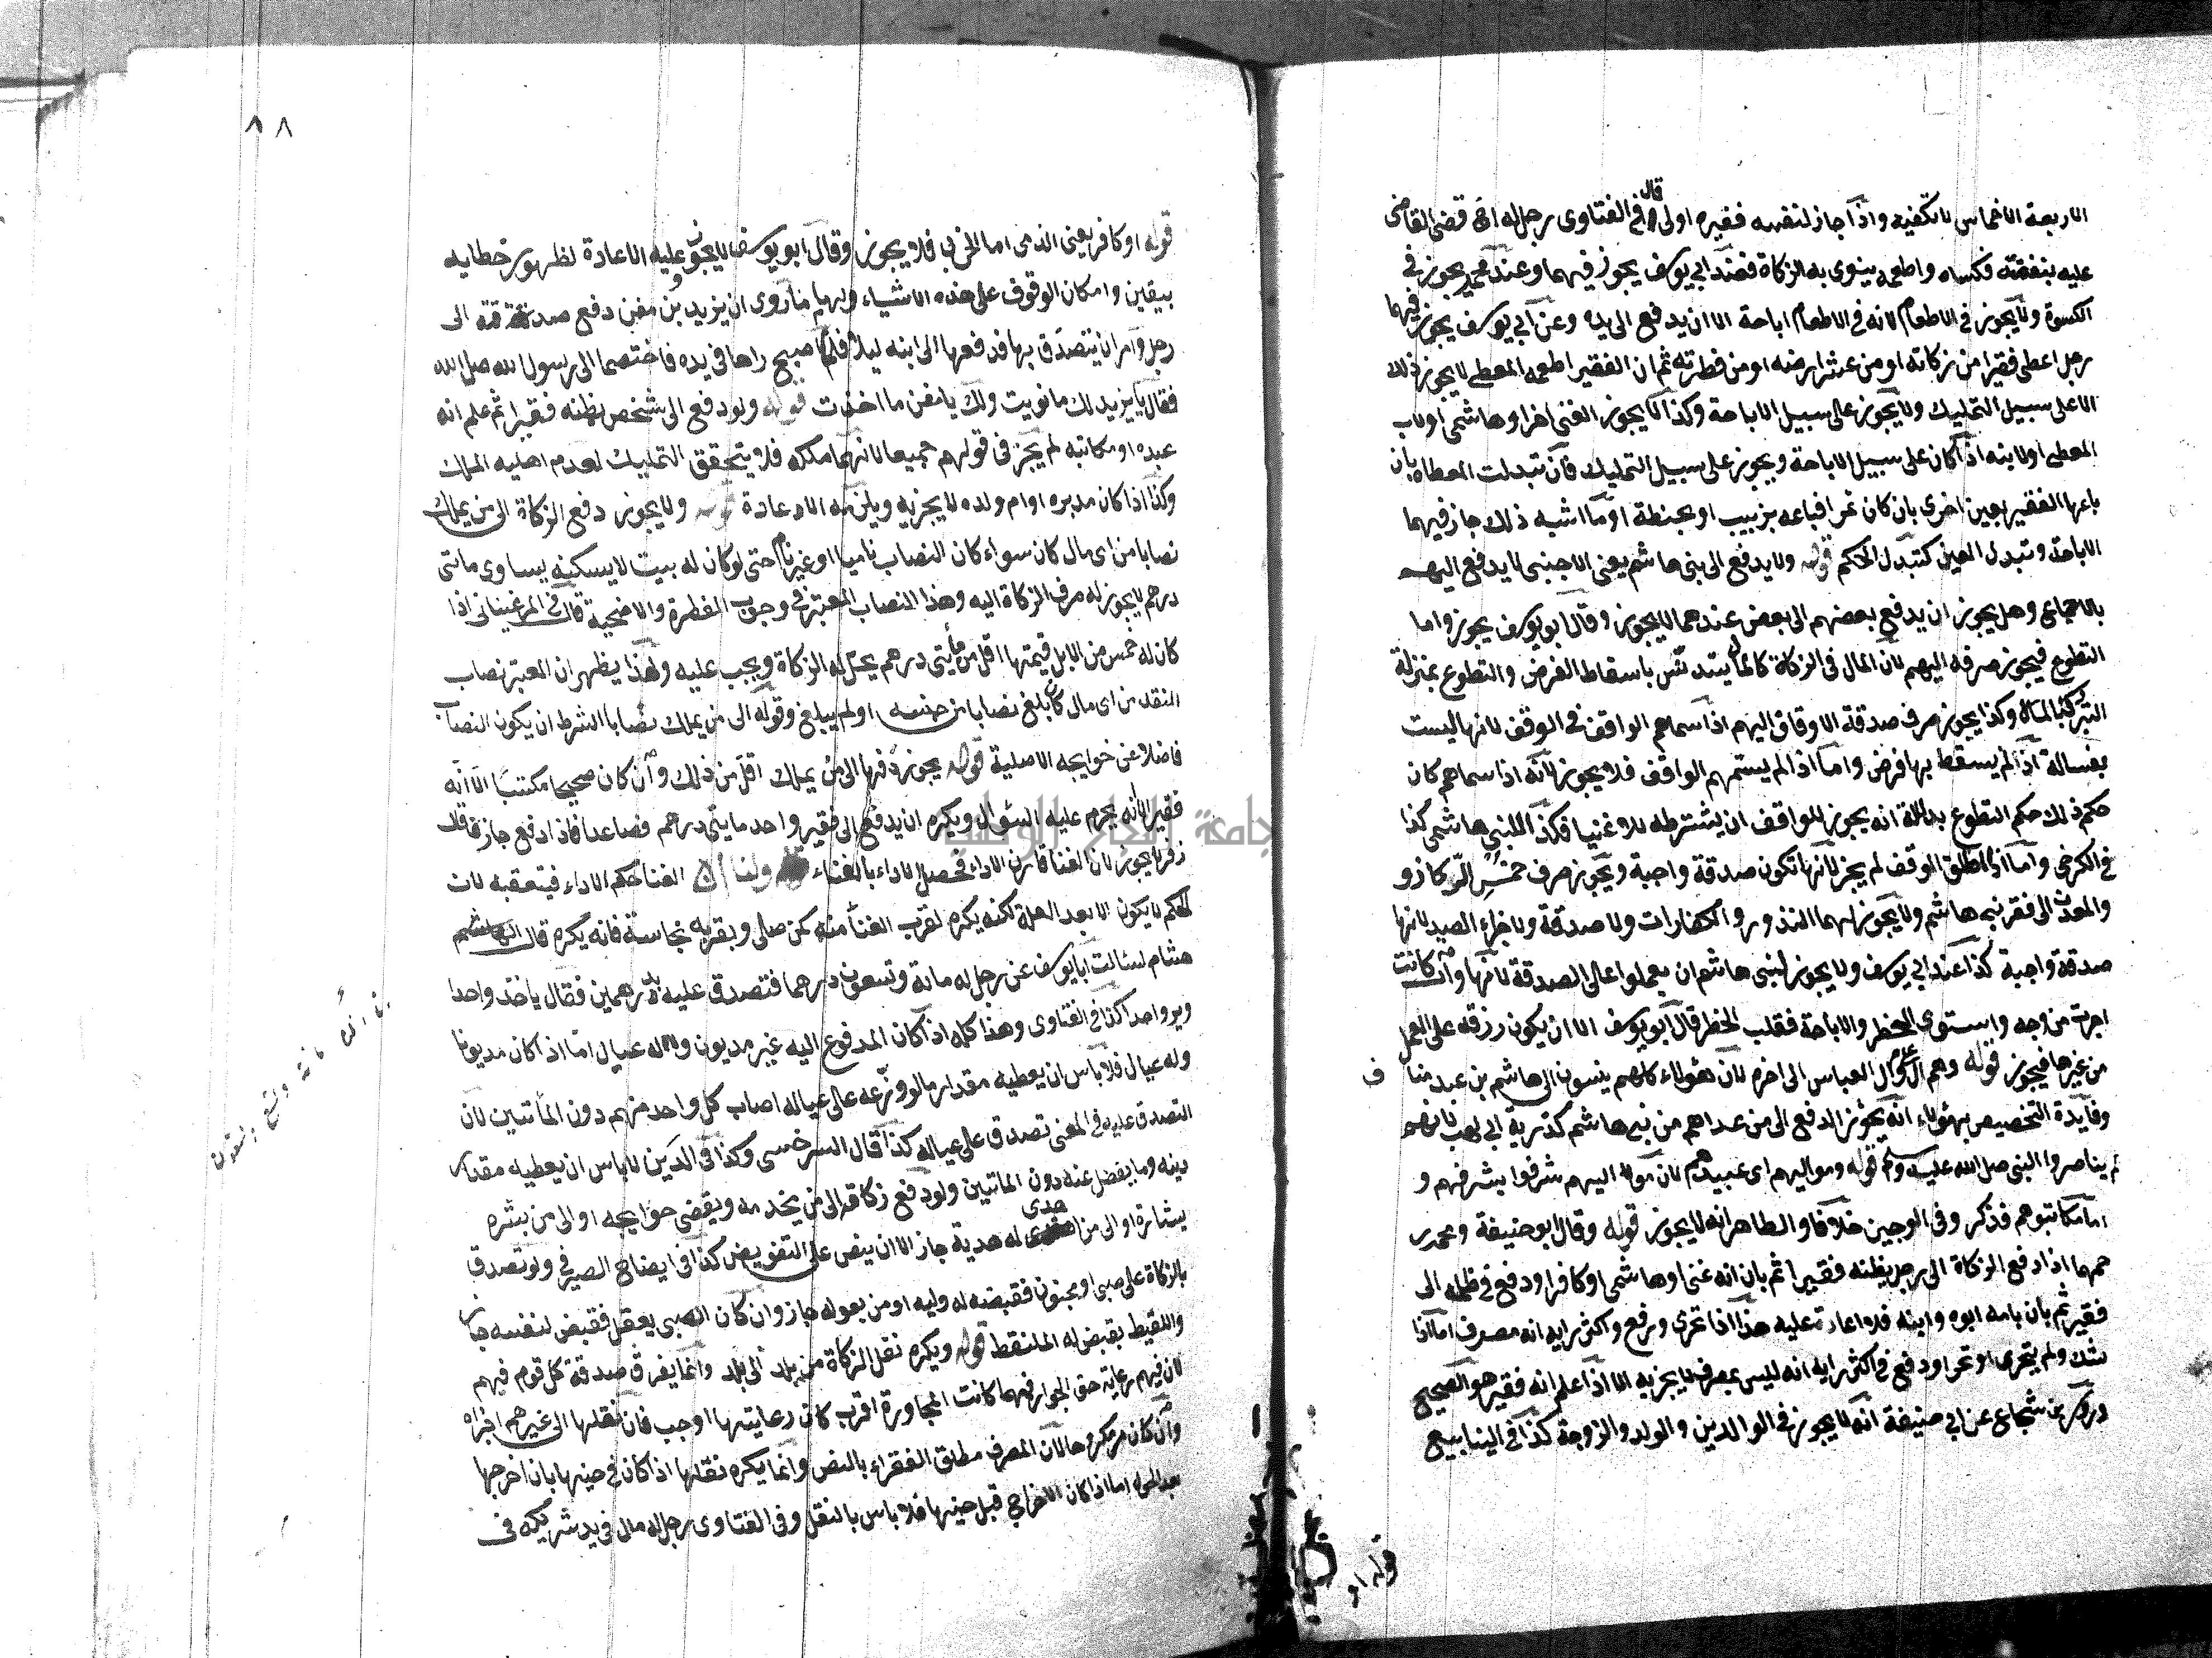 الاربعة الاخماس لا تكفيه واذا جاز لنفسه فغيره اولى قال في الفتاوى رجل له اخ قضى القاضي
عليه بنفقته فكساه واطعمه ينوي به الزكاة فعند ابي يوسف يجوز فيهما وعند محمد يجوز في
الكسوة ولا يجوز في الاطعام لانه في الاطعام اباحة الا ان يدفع الى يده وعن ابي يوسف يجوز فيهما
رجل اعطى فقيرا من زكاته او من عشر ارضه او من فطرته ثم ان الفقير اطعمه المعطي لا يجوز ذلك
الا على سبيل التمليك ولا يجوز على سبيل الاباحة وكذا لا يجوز لغني اهدا وهاشمي او لاب
المعطي او لابنه اذا كان على سبيل الاباحة ويجوز على سبيل التمليك فان تبدلت المعطاه بان
باعها الفقير بعين اخرى بان كان تمرا فباعه بزبيب او بحنطة او ما اشبه ذلك جاز فيهما
الاباحة وتبدل العين كتبدل الحكم قوله ولا يدفع الى بني هاشم يعني الاجنبي لا يدفع اليهم
بالاجماع وهل يجوز ان يدفع بعضهم الى بعض عندهما لا يجوز وقال ابو يوسف يجوز واما
التطوع فيجوز صرفه اليهم لان المال في الزكاة كالماء يتدنس باسقاط الفرض والتطوع بمنزلة
التبرد بالماء وكذا يجوز صرف صدقة الاوقاف اليهم اذا سماهم الواقف في الوقف لانها ليست
بغسالة اذ لم يسقط بها فرض واما اذا لم يسمهم الواقف فلا يجوز لانه اذا سماهم كان
حكم ذلك حكم التطوع بدلالة انه يجوز للواقف ان يشترطه للاغنيا فكذا لبني هاشم كذا
في الكرخي واما اذا اطلق الوقف لم يجز لانها تكون صدقة واجبة ويجوز صرف خمس الركاز و
والمعدن الى فقر بني هاشم ولا يجوز لهما النذور والكفارات ولا صدقة ولا جزاء الصيد لانها
صدقة واجبة كذا عند ابي يوسف ولا يجوز لبني هاشم ان يعملوا على الصدقة لانها وان كانت
اجرة من وجه واستوى الحظر والاباحة فغلب الحظر قال ابو يوسف الا ان يكون رزقه على العمل
من غيرها فيجوز قوله وهم ال علي وال العباس الى اخره لان هؤلاء كلهم ينسبون الى هاشم بن عبد مناف
وفايدة التخصيص بهؤلاء انه يجوز الدفع الى من عداهم من بني هاشم كذرية ابي لهب لانهم
لم يناصروا النبي صلى الله عليه وسلم قوله ومواليهم اي عبيدهم لان موالي اليهم شرفوا بشرفهم و
اما مكاتبوهم فذكر في الوجيز خلافا والظاهر انه لا يجوز قوله وقال ابو حنيفة ومحمد ر
حمهما اذا دفع الزكاة الى رجل يظنه فقيرا ثم بان انه غني او هاشمي او كافر او دفع في ظلمه الى
فقير ثم بان انه ابوه او ابنه فلا اعادة عليه هذا اذا تحرى ودفع واكثر رايه انه مصرف اما اذا
شك ولم يتحرى او تحرا ودفع في اكثر رايه انه ليس بمصرف لا يجزيه الا اذا علم انه فقير هو الصحيح
وذكر ابن شجاع عن ابي حنيفة انه لا يجوز في الوالدين والولد والزوجة كذا في الينابيع
قوله او
٨٨
قوله او كافر يعني الذمي اما الحربي فلا يجوز وقال ابو يوسف لا يجوز وعليه الاعادة لظهور خطايه
بيقين وامكان الوقوف على هذه الاشياء ولهما ما روي ان يزيد بن معن دفع صدقته الى
رجل وامر ان يتصدق بها فدفعها الى ابنه ليلا فلما اصبح راها في يده فاختصما الى رسول الله صلى الله
فقال يا يزيد لك ما نويت ولك يا معن ما اخذت قوله ولو دفع الى شخص يظنه فقيرا ثم علم انه
عبده او مكاتبه لم يجز في قولهم جميعا لانهما ملكه فلا يتحقق التمليك لعدم اهلية الملك
وكذا اذا كان مدبره او ام ولده لا يجزيه ويلزمه الاعادة قوله ولا يجوز دفع الزكاة الى من يملك
نصابا من اي مال كان سواء كان النصاب ناميا او غير نام حتى لو كان له بيت لا يسكنه يساوي مائتي
درهم لا يجوز له صرف الزكاة اليه وهذا النصاب المعتبر في وجوب الفطرة والاضحية قال في المرغيناني اذا
كان له خمس من الابل قيمتها اقل من مأيتي درهم يحل له الزكاة ويجب عليه ولهذا يظهر ان المعتبر نصاب
النقد من اي مال كان بلغ نصابا من جنسه او لم يبلغ وقوله الى من يملك نصابا الشرط ان يكون النصاب
فاضلا عن حوايجه الاصلية قوله يجوز دفعها الى من يملك اقل من ذلك وان كان صحيحا مكتسبا الا انه
فقير لانه يحرم عليه السؤال ويكره ان يدفع الى فقير واحد مايتي درهم فصاعدا فاذا دفع جاز وقال
زفر لا يجوز لان الغنا قارن الاداء فحصل الاداء بالغناء ولنا ان الغنا حكم الاداء فيتعقبه لان
الحكم لا يكون الا بعد العلة لكنه يكره لقرب الغنا منه كمن صلى وبقربه نجاسة فانه يكره قال
هشام سالت ابا يوسف عن رجل له مائة وتسعون درهما فتصدق عليه بدرهمين فقال ياخذ واحدا
ويرد واحدا كذا في الفتاوى وهذا كله اذا كان المدفوع اليه غير مديون ولا له عيال اما اذا كان مديونا
وله عيال فلا باس ان يعطيه مقدار ما لو وزعه على عياله اصاب كل واحد منهم دون المأتين لان
التصدق عليه في المعنى تصدق على عياله كذا قال السرخسي وكذا في الدين لا باس ان يعطيه مقدار
دينه وما يفضل عنده دون المائتين ولو دفع زكاته الى من يخدمه ويقضي حوايجه او الى من بشره
بشارة او الى من اهدى له هدية جاز الا ان ينص على التفويض كذا في ايضاح الصيرفي ولو تصدق
بالزكاة على صبي او مجنون فقبضه له وليه او من يعوله جاز وان كان الصبي يعقل فقبض لنفسه جاز
واللقيط يقبض له الملتقط قوله ويكره نقل الزكاة من بلد الى بلد وانما يفرق صدقة كل قوم فيهم
لان فيهم رعاية حق الجوار فمهما كانت المجاورة اقرب كان رعايتها اوجب فان نقلها الى غيرهم اجزاه
وان كان مكروها لان المصرف مطلق الفقراء بالنص وانما يكره نقلها اذا كان في حينها بان اخرجها
بعد الحول اما اذا كان الاخراج قبل حينها فلا باس بالنقل وفي الفتاوى رجل له مال في يد شريكه في